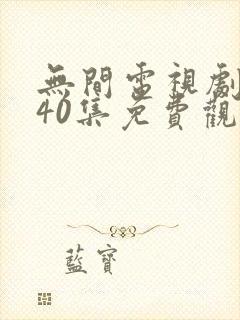 無間電視劇
40集免費觀
藍寶